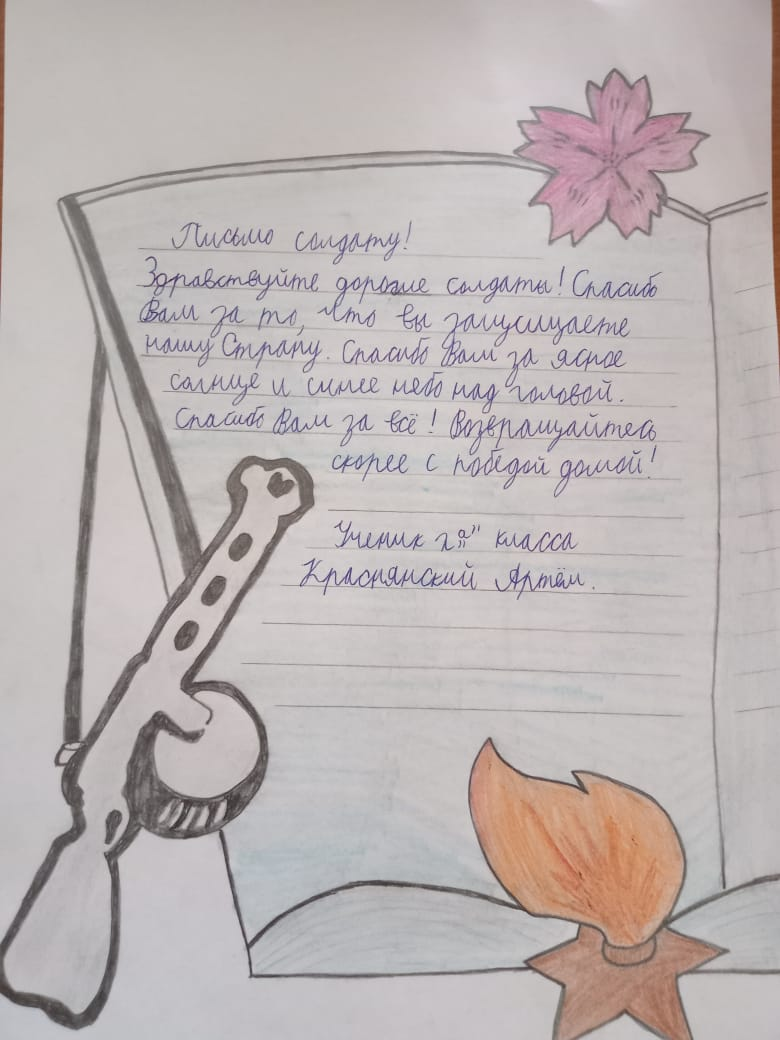 Письмо солдату!
Здравствуйте дорогие солдаты! Спасибо
Вам за то, что вы защищаете
нашу Страну. Спасибо Вам за ясное
солнце и синее небо над головой.
Спасибо Вам за всё! Возвращайтесь
скорее с победой домой!
Ученик 2 "а" класса
Краснянский Артём.